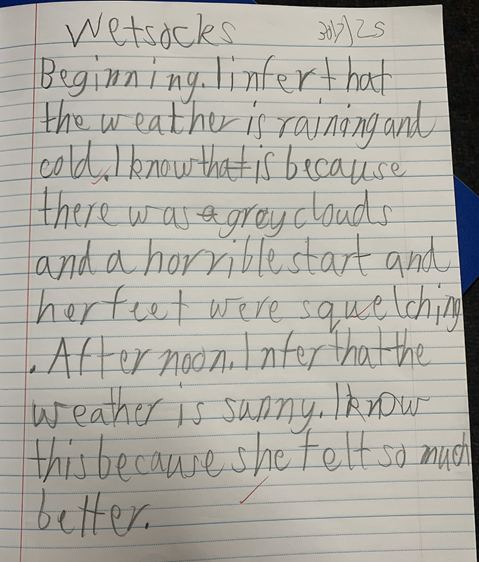 Wetsocks 30/3/25
Beginning. I infer that
the weather is raining and
cold. I know that is because
there was a grey clouds
and a horrible start and
her feet were squelching
. After noon. Infer that the
weather is sunny. I know
this because she felt so much
better.